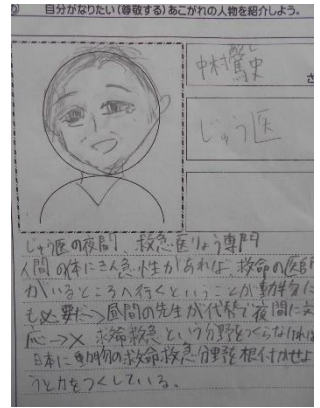 自分がなりたい(尊敬する)あこがれの人物を紹介しよう。
中村篤史
さ
じゅう医
じゅう医の夜間、救急医りょう専門
人間の体にきん急性があれば、救命の医師
がいるところへ行くということが動物に
も必要だ→昼間の先生が代わりで夜間に文
応→× 求命救急という分野をつくらなければ
日本に動物の求命救急分野を根付かせよ
うと力をつくしている。